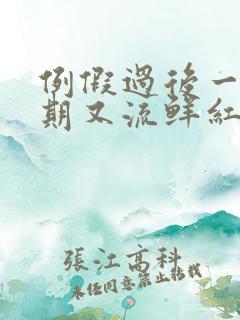 例假過後一
期又流鮮紅
張江高科
未经同意禁止转载